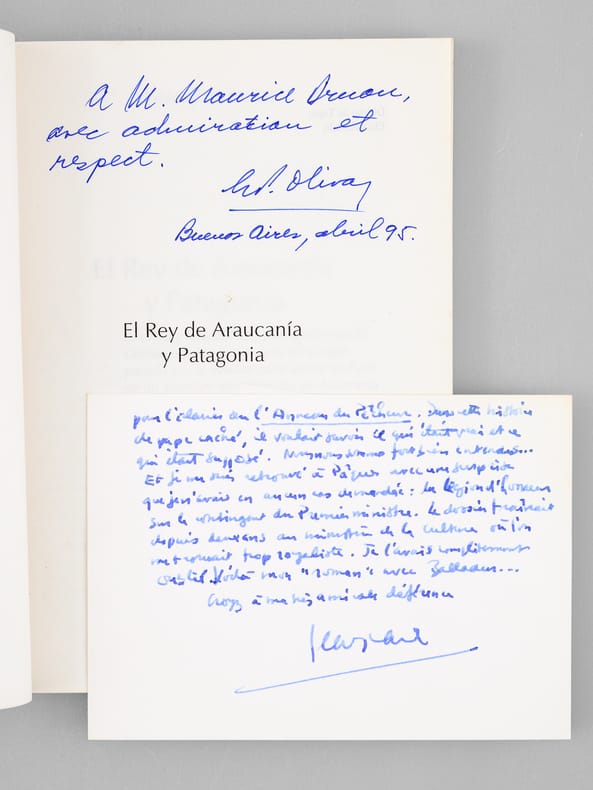 A M. Maurice Druon,
avec admiration et
respect.
Buenos Aires, abril 95.
El Rey de Araucanía
y Patagonia
pour l'éclairer sur l'Anneau du Pêcheur. Dans cette histoire
de pape caché, il voulait savoir ce qui était vrai et ce
qui était supposé. Nous nous sommes fort bien entendus...
Et je me suis retrouvé à Pâques avec une surprise
que je n'avais en aucun cas demandée : la légion d'honneur
sur le contingent du Premier ministre. Le dossier traînait
depuis deux ans au ministère de la culture où l'on
me trouvait trop royaliste. Je l'avais complètement
oublié. Voilà mon "roman" avec Balladur...
Croyez à ma très amicale déférence